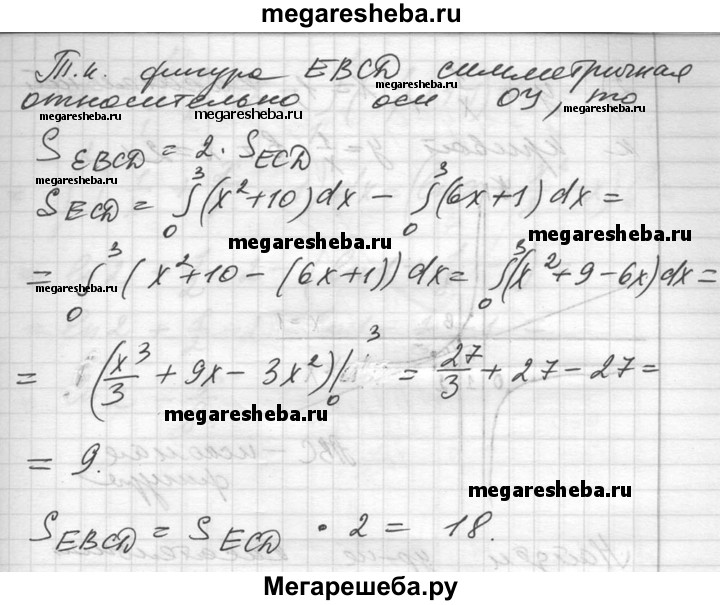 megaresheba.ru
Т.к. фигура EBCD симметричная
megaresheba.ru
относительно оси OY, то
megaresheba.ru
megaresheba.ru
S_EBCD = 2 · S_ECD
megaresheba.ru
S_ECD = ∫₀³(x²+10)dx − ∫₀³(6x+1)dx =
megaresheba.ru
megaresheba.ru
= ∫₀³(x²+10−(6x+1))dx = ∫₀³(x²+9−6x)dx =
megaresheba.ru
= (x³/3 + 9x − 3x²)|₀³ = 27/3 + 27 − 27 =
megaresheba.ru
= 9.
megaresheba.ru
S_EBCD = S_ECD · 2 = 18.
Мегарешеба.ру